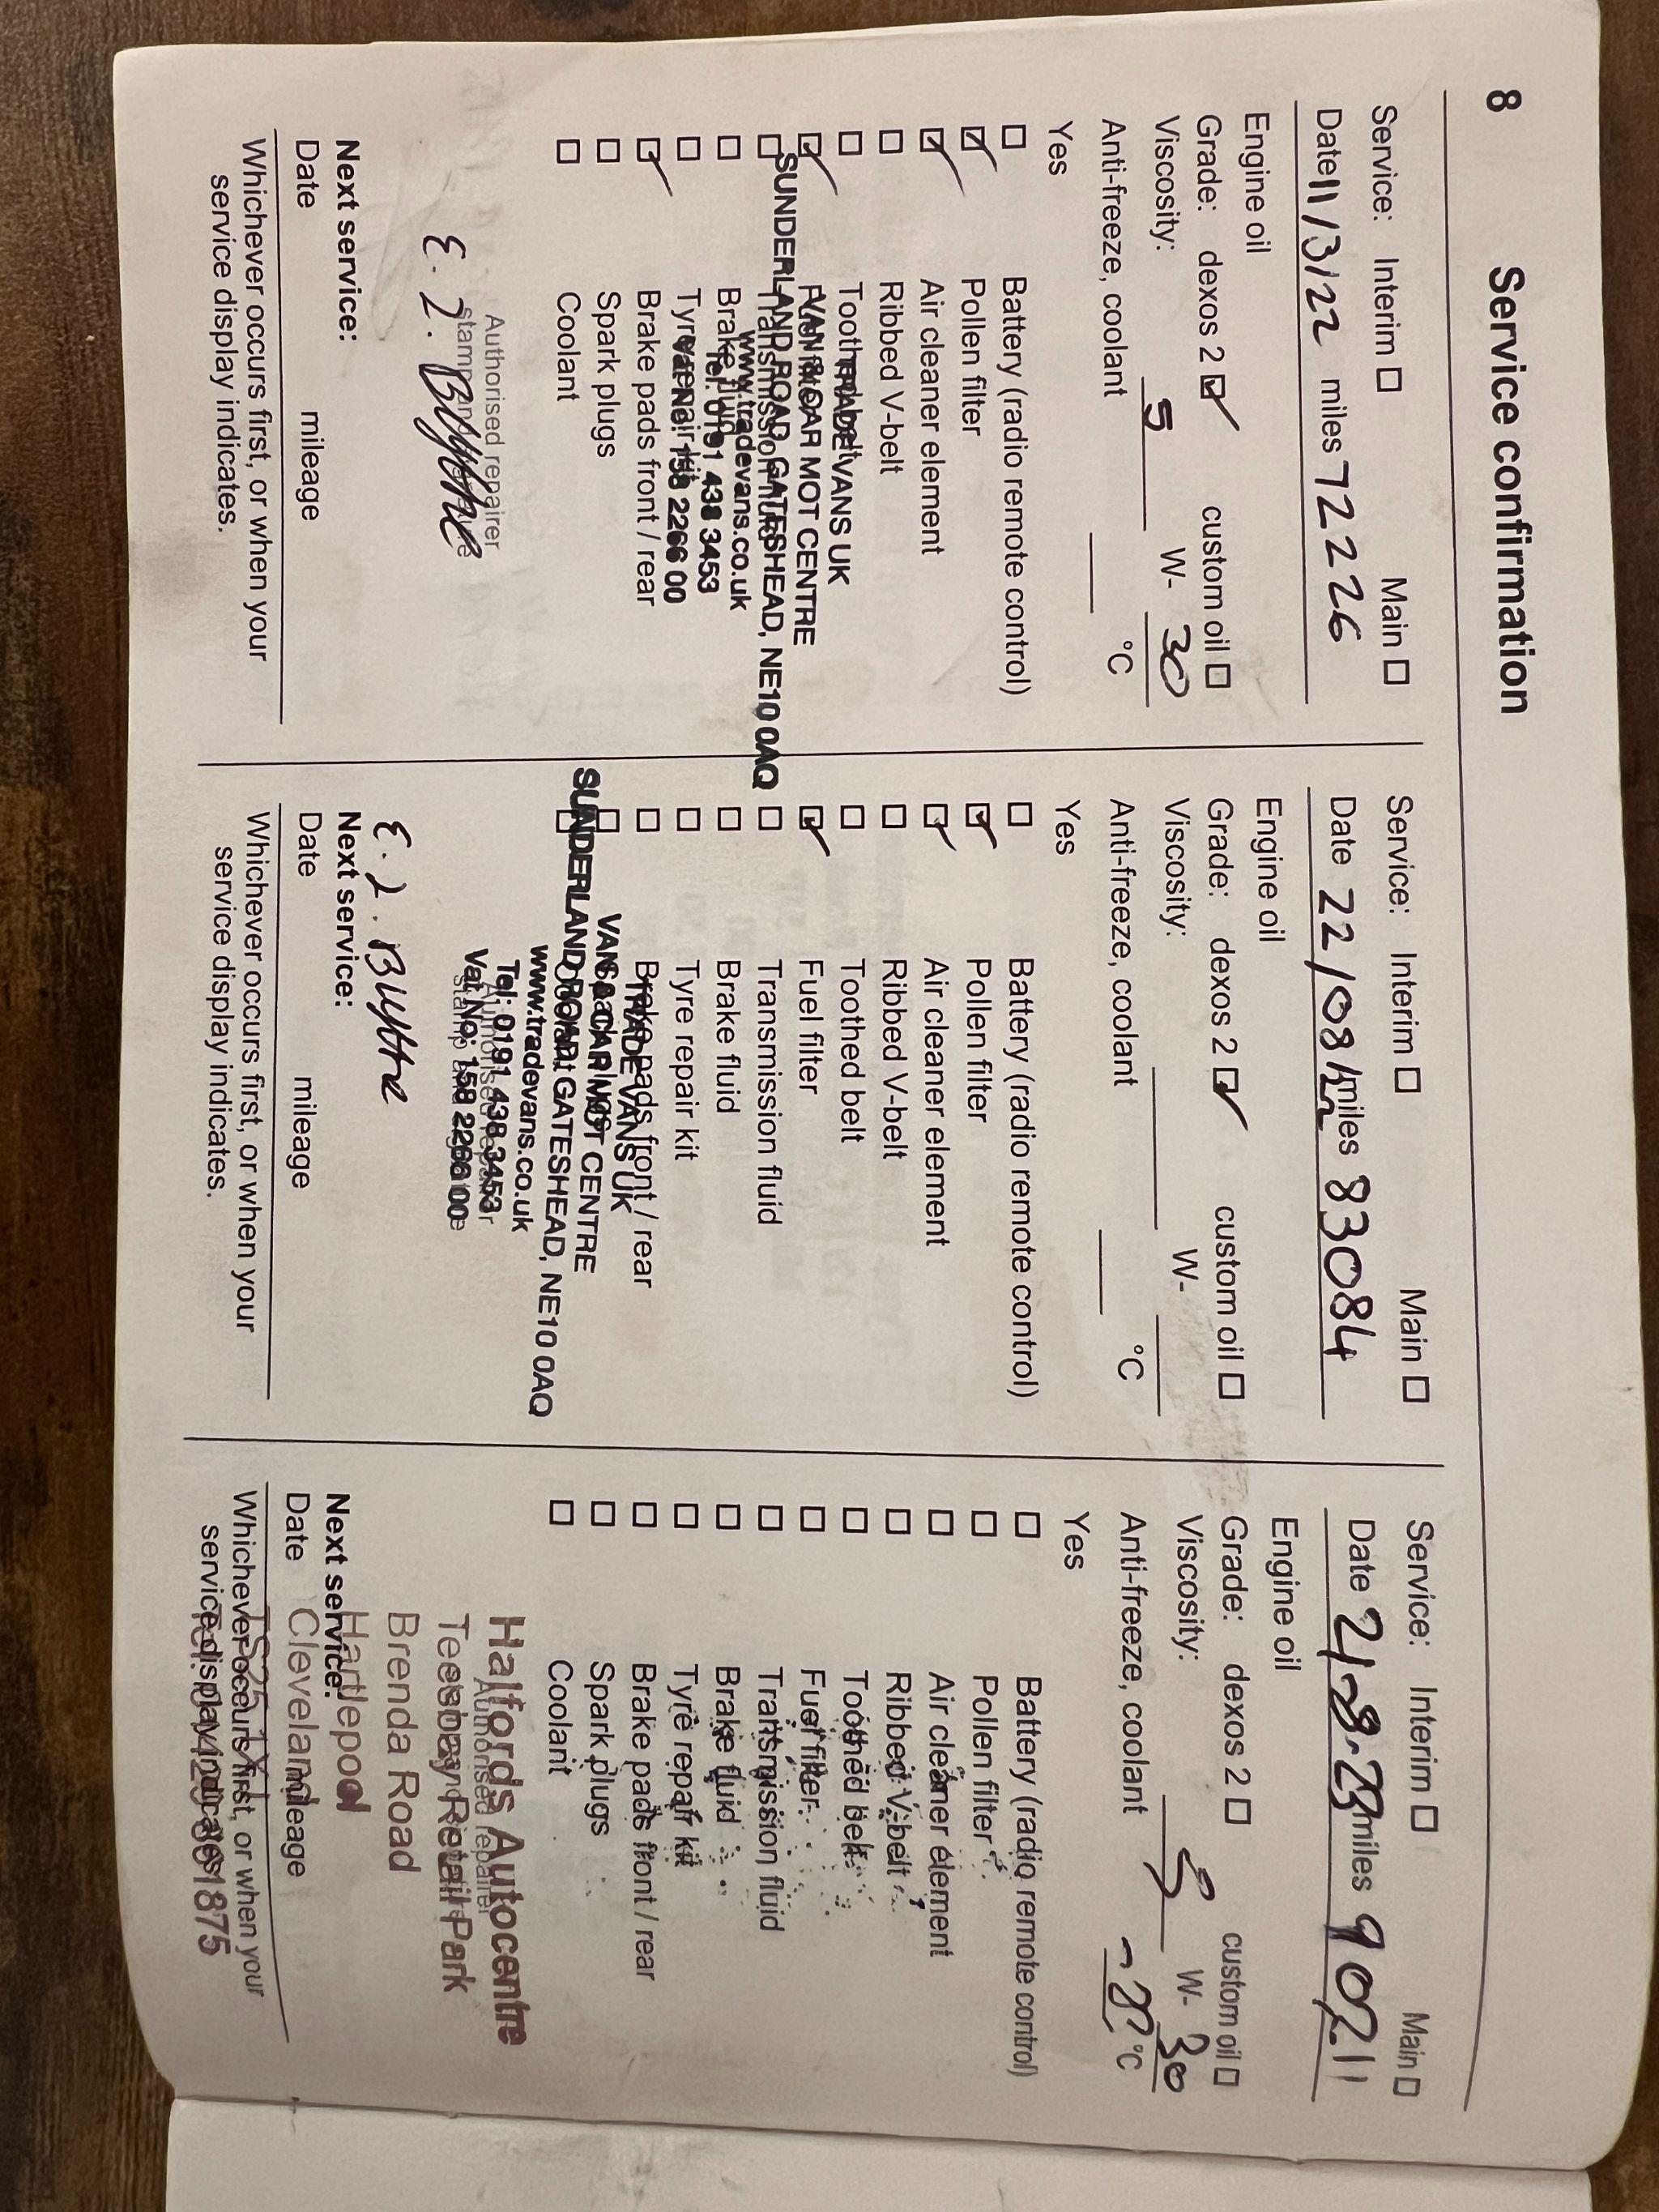 8 Service confirmation
Service: Interim ☐ Main ☐
Date 11/3/22 miles 72226
Engine oil
Grade: dexos 2 ☑ custom oil ☐
Viscosity: 5 W- 30
Anti-freeze, coolant °C
Yes
☐ Battery (radio remote control)
☑ Pollen filter
☑ Air cleaner element
☐ Ribbed V-belt
☐ Toothed belt
☑ Fuel filter
☐ Transmission fluid
☐ Brake fluid
☐ Tyre repair kit
☑ Brake pads front / rear
☐ Spark plugs
☐ Coolant
TRADE VANS UK
VAN & CAR MOT CENTRE
SUNDERLAND ROAD, GATESHEAD, NE10 0AQ
www.tradevans.co.uk
Tel: 0191 438 3453
Vat No: 158 2266 00
Authorised repairer
stamp and signature
Next service:
Date mileage
Whichever occurs first, or when your
service display indicates.
Service: Interim ☐ Main ☐
Date 22/08/22 miles 83084
Engine oil
Grade: dexos 2 ☑ custom oil ☐
Viscosity: W-
Anti-freeze, coolant °C
Yes
☐ Battery (radio remote control)
☑ Pollen filter
☑ Air cleaner element
☐ Ribbed V-belt
☐ Toothed belt
☑ Fuel filter
☐ Transmission fluid
☐ Brake fluid
☐ Tyre repair kit
☐ Brake pads front / rear
☐ Spark plugs
☐ Coolant
TRADE VANS UK
VAN & CAR MOT CENTRE
SUNDERLAND ROAD, GATESHEAD, NE10 0AQ
www.tradevans.co.uk
Tel: 0191 438 3453
Vat No: 158 2266 00
Authorised repairer
stamp and signature
Next service:
Date mileage
Whichever occurs first, or when your
service display indicates.
Service: Interim ☐ Main ☐
Date 21-8-23 miles 90211
Engine oil
Grade: dexos 2 ☐ custom oil ☐
Viscosity: 5 W- 30
Anti-freeze, coolant °C
Yes
☐ Battery (radio remote control)
☐ Pollen filter
☐ Air cleaner element
☐ Ribbed V-belt
☐ Toothed belt
☐ Fuel filter
☐ Transmission fluid
☐ Brake fluid
☐ Tyre repair kit
☐ Brake pads front / rear
☐ Spark plugs
☐ Coolant
Authorised repairer
Halfords Autocentre
Teesbay Retail Park
Brenda Road
Hartlepool
Cleveland
Next service:
Date mileage
Whichever occurs first, or when your
service display indicates.